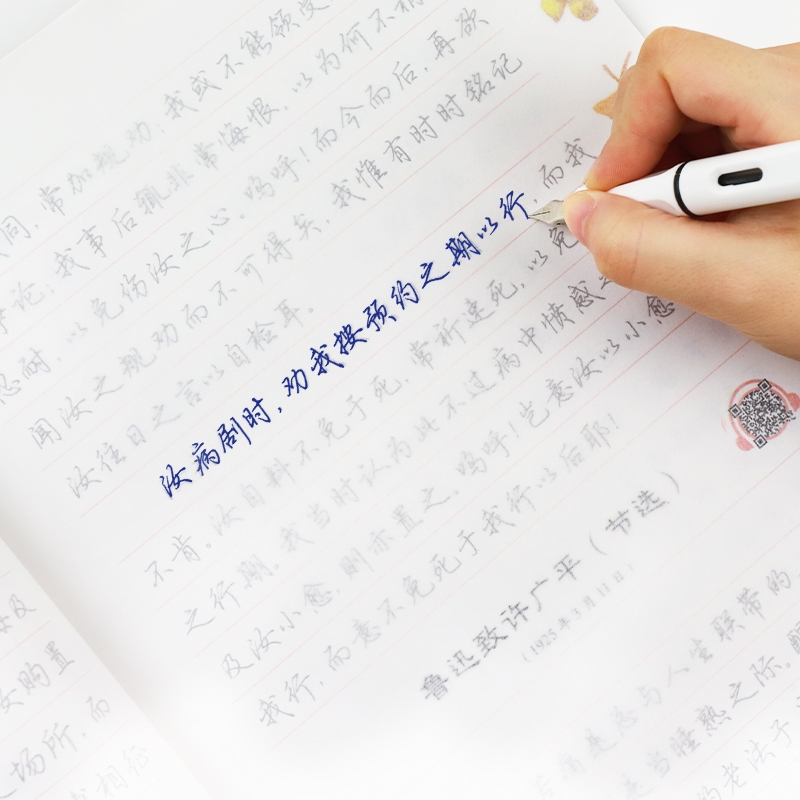 同,常加规劝,我或不能领受
论,我事后辄非常悔恨,以为何不稍
忍耐,以免伤汝之心。呜呼!而今而后,再欲
闻汝之规劝而不可得矣,我惟有时时铭记
汝往日之言以自检耳。
汝病剧时,劝我按预约之期以行,而我
不肯。汝自料不免于死,常祈速死,以免
之行期。我当时认为此不过病中愤感之
及汝小愈,则亦置之。呜呼!岂意汝以小愈
我行,而意不免死于我行以后耶!
鲁迅致许广平(节选)
(1925年3月11日)
是与人生联带的,
是当睡熟之际。
的老法子
及
女购置
场所,而
相任